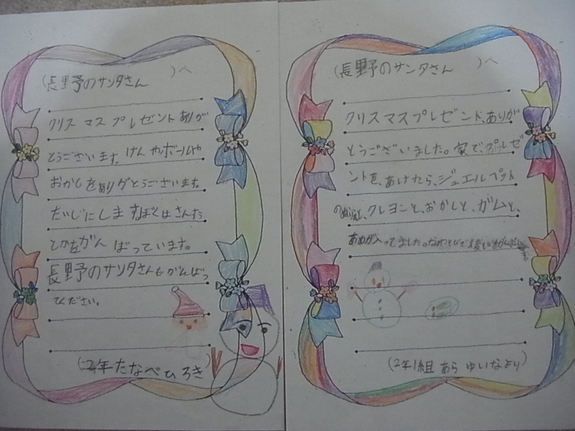 (長野のサンタさん )へ
クリスマスプレゼントありが
とうございます。けん やボールや
おかしをありがとうございます。
だいじにします
しかをがんばっています。
長野のサンタさんもがんばっ
てください。
(2年たなべひろき)
(長野のサンタさん )へ
クリスマスプレゼント、ありが
とうございました。家で、プレゼ
ントを、あけたら、ジュエルペット
クレヨンと、おかしと、ガムと、
あめが入ってました。
(2年1組 あら ゆいなより)